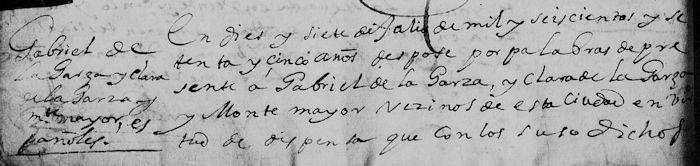 Gabriel de
la Garza y Clara
de la Garza y
Mte mayor, es
pañoles.
En dies y siete de Julio de mil y seiscientos y se
tenta y cinco años despose por pa la bras de pre
sente a Gabriel de la Garza, y Clara de la Garza
y Monte mayor Vezinos de esta Ciudad en Vir
tud de dispensa que con los suso dichos